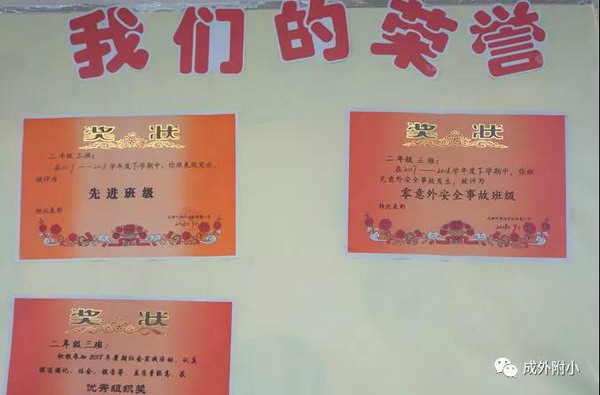 我们的荣誉
奖状
二年级三班：
在2017——2018学年度下学期中，你班表现突出，
被评为
先进班级
特此表彰
奖状
二年级三班：
在2017——2018学年度下学期中，你班
无意外安全事故发生，被评为
零意外安全事故班级
特此表彰
奖状
二年级三班：
积极参加2018年暑期社会实践活动，认真
撰写游记、体会、报告等，且质量较高，获
优秀组织奖
成外附小